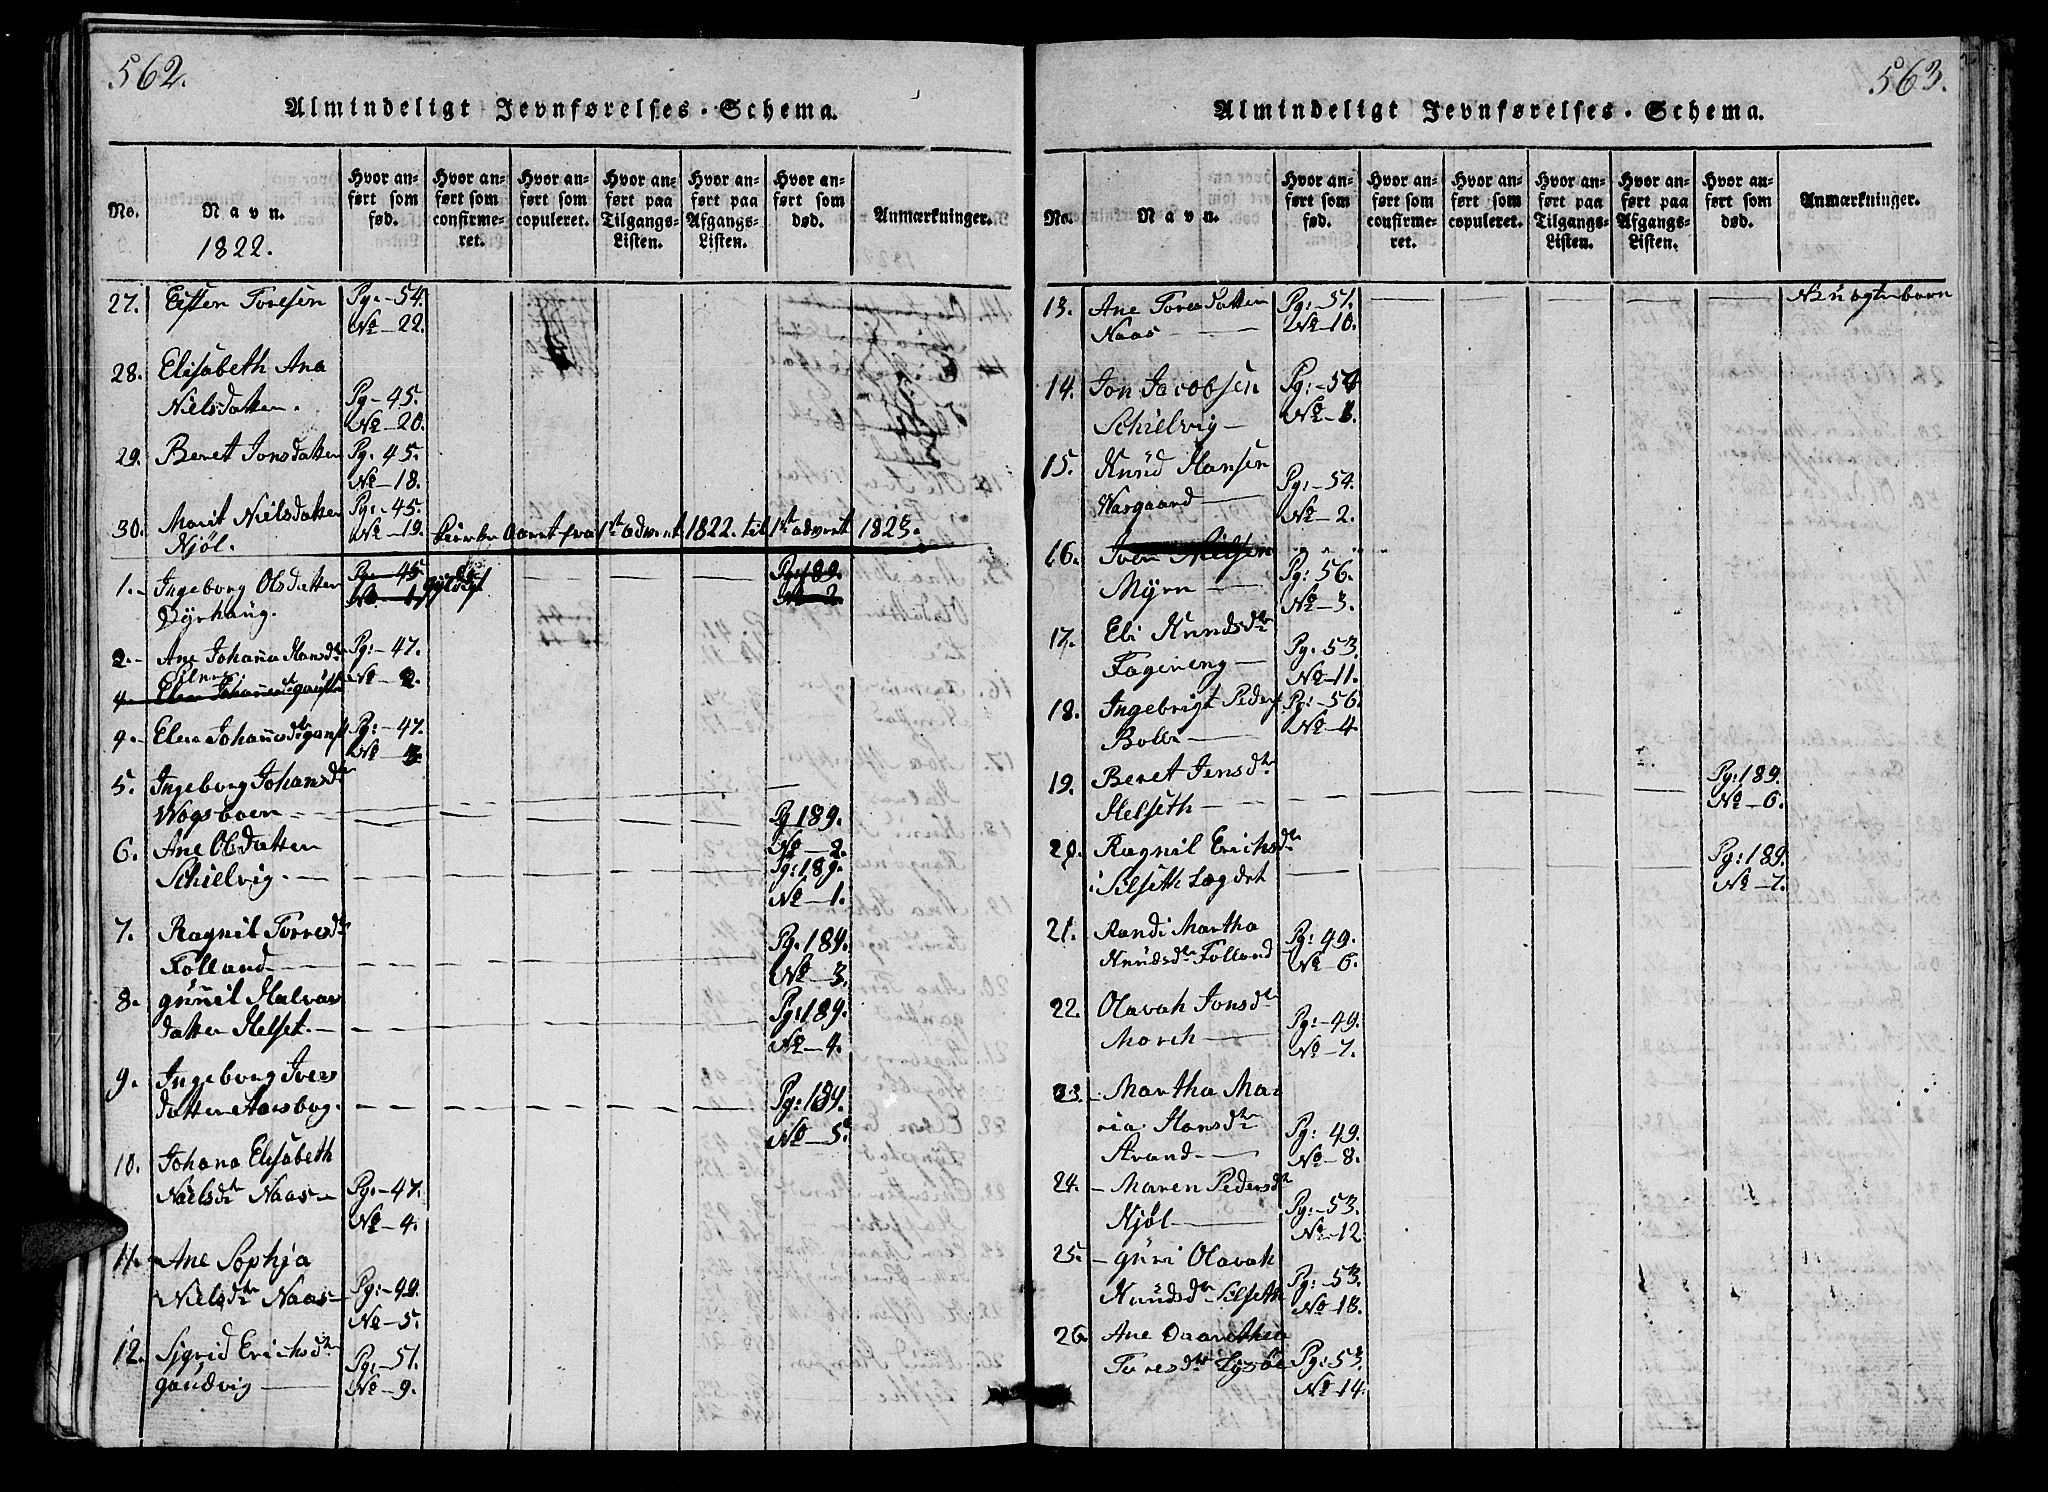 562.
Almindeligt Jevnførelses-Schema.
No.
Navn.
1822.
Hvor anført som fød.
Hvor anført som confirmeret.
Hvor anført som copuleret.
Hvor anført paa Tilgangs-Listen.
Hvor anført paa Afgangs-Listen.
Hvor anført som død.
Anmærkninger.
27. Eisten Toresen Pg.-54.
No-22.
28. Elisabeth Ana
Nielsdatter. Pg-45.
No-20.
29. Beret Jonsdatter Pg. 45.
No-18.
30. Marit Nielsdatter Pg:-45.
Njøl. No-19. Kierke Aaret fra 1ste advent 1822. til 1st advent 1823.
1.- Ingeborg Olsdatter Pg-45 Pg:189.
Dyrhaug. No-1. No-2.
2.- Ane Johana Hansdtr Pg:-47.
No-2.
4.- Elen Johannesdtr
4.- Elen Johannesdtr Pg:-47.
No-3.
5. Ingeborg Johansdtr
Wogsboen Pg 189.
No-2.
6. Ane Olsdatter
Schielvig. Pg:189.
No-1.
7. Ragnil Torresdtr
Folland Pg. 189.
No-3.
8. gunnil Halvors
datter Helset. Pg:189.
No-4.
9. Ingeborg Ivers
datter Aarsbog. Pg:189.
No-5.
10. Johana Elisabeth
Nielsdtr Naas Pg:-47.
No-4.
11. Ane Sophja
Nielsdtr Naas Pg:-49.
No-5.
12. Sigrid Erichsdtr
gaudvig Pg:-51.
No-9.
563.
Almindeligt Jevnførelses-Schema.
No.
Navn.
Hvor anført som fød.
Hvor anført som confirmeret.
Hvor anført som copuleret.
Hvor anført paa Tilgangs-Listen.
Hvor anført paa Afgangs-Listen.
Hvor anført som død.
Anmærkninger.
13. Ane Toresdatter Pg:-51. NB uægte barn
Naas No-10.
14. Jon Jacobsen Pg:-54
Schielvig No-1.
15. Knud Hansen
Wasgaard Pg:-54.
No-2.
16. Iver Nielsen
Myrn Pg:56.
No-3.
17. Eli Knudsdtr
Fagereng Pg. 53.
No-11.
18. Ingebrigt Peders Pg:-56
Bolli No-4.
19. Beret Jensdtr Pg:189.
Helseth No-6.
20. Ragnil Erichsdtr Pg:189.
i Silseth Lægdet No-7.
21. Randi Martha
Knudsdtr Folland Pg:49.
No-6.
22. Olavah Jonsdtr
Morch Pg:-49.
No-7.
23. Martha Ma
ria Hansdtr
Strand Pg:49.
No-8.
24. Maren Pedersdtr
Njøl Pg:-53.
No-12
25. guri Olavah
Knudsdtr Silseth Pg:-53.
No-13.
26. Ane Daarethea
Toresdtr Lysöe Pg:53.
No-14.